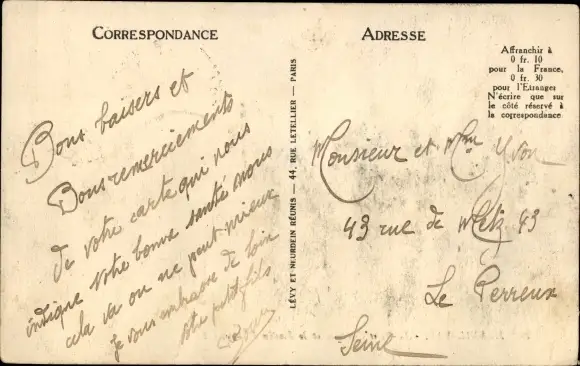 CORRESPONDANCE
Bons baisers et
Bons remerciements
de votre carte qui nous
indique votre bonne santé nous
cela va on ne peut mieux
je vous embrasse de loin
votre petit fils
LÉVY ET NEURDEIN RÉUNIS — 44, RUE LETELLIER — PARIS
ADRESSE
Affranchir à
0 fr. 10
pour la France,
0 fr. 30
pour l'Etranger
N'écrire que sur
le côté réservé à
la correspondance
Monsieur et Mme Yvon
43 rue de Metz 43
Le Perreux
Seine